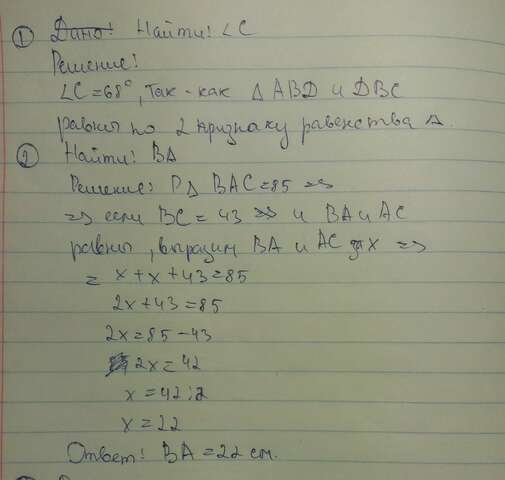 ① Дано! Найти! ∠C
Решение!
∠C=68°, так-как △ABD и DBC
равны по 2 признаку равенства △.
② Найти! BA
Решение: P△ BAC=85 =>
=> если BC = 43 => и BA и AC
равны, выразим BA и AC за x =>
= x+x+43=85
2x+43=85
2x=85-43
2x=42
x=42:2
x=22
Ответ! BA=22 см.